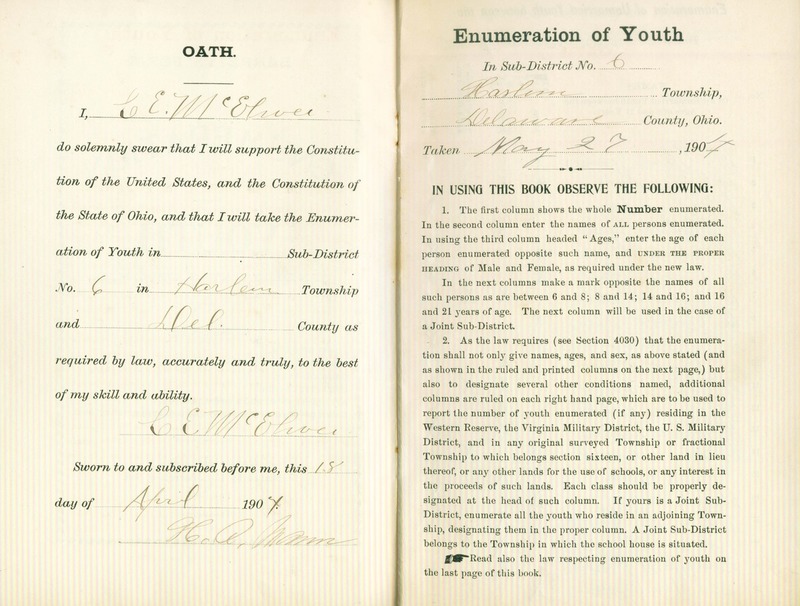 OATH.
I, C E. McElwee
do solemnly swear that I will support the Constitu-
tion of the United States, and the Constitution of
the State of Ohio, and that I will take the Enumer-
ation of Youth in Sub-District
No. 6 in Harlem Township
and Del. County as
required by law, accurately and truly, to the best
of my skill and ability.
C E McElwee
Sworn to and subscribed before me, this 18
day of April 1904
Enumeration of Youth
In Sub-District No. 6
Harlem Township,
Delaware County, Ohio.
Taken May 27, 1904
IN USING THIS BOOK OBSERVE THE FOLLOWING:
1. The first column shows the whole Number enumerated.
In the second column enter the names of ALL persons enumerated.
In using the third column headed "Ages," enter the age of each
person enumerated opposite such name, and UNDER THE PROPER
HEADING of Male and Female, as required under the new law.
In the next columns make a mark opposite the names of all
such persons as are between 6 and 8; 8 and 14; 14 and 16; and 16
and 21 years of age. The next column will be used in the case of
a Joint Sub-District.
2. As the law requires (see Section 4030) that the enumera-
tion shall not only give names, ages, and sex, as above stated (and
as shown in the ruled and printed columns on the next page,) but
also to designate several other conditions named, additional
columns are ruled on each right hand page, which are to be used to
report the number of youth enumerated (if any) residing in the
Western Reserve, the Virginia Military District, the U. S. Military
District, and in any original surveyed Township or fractional
Township to which belongs section sixteen, or other land in lieu
thereof, or any other lands for the use of schools, or any interest in
the proceeds of such lands. Each class should be properly de-
signated at the head of such column. If yours is a Joint Sub-
District, enumerate all the youth who reside in an adjoining Town-
ship, designating them in the proper column. A Joint Sub-District
belongs to the Township in which the school house is situated.
Read also the law respecting enumeration of youth on
the last page of this book.